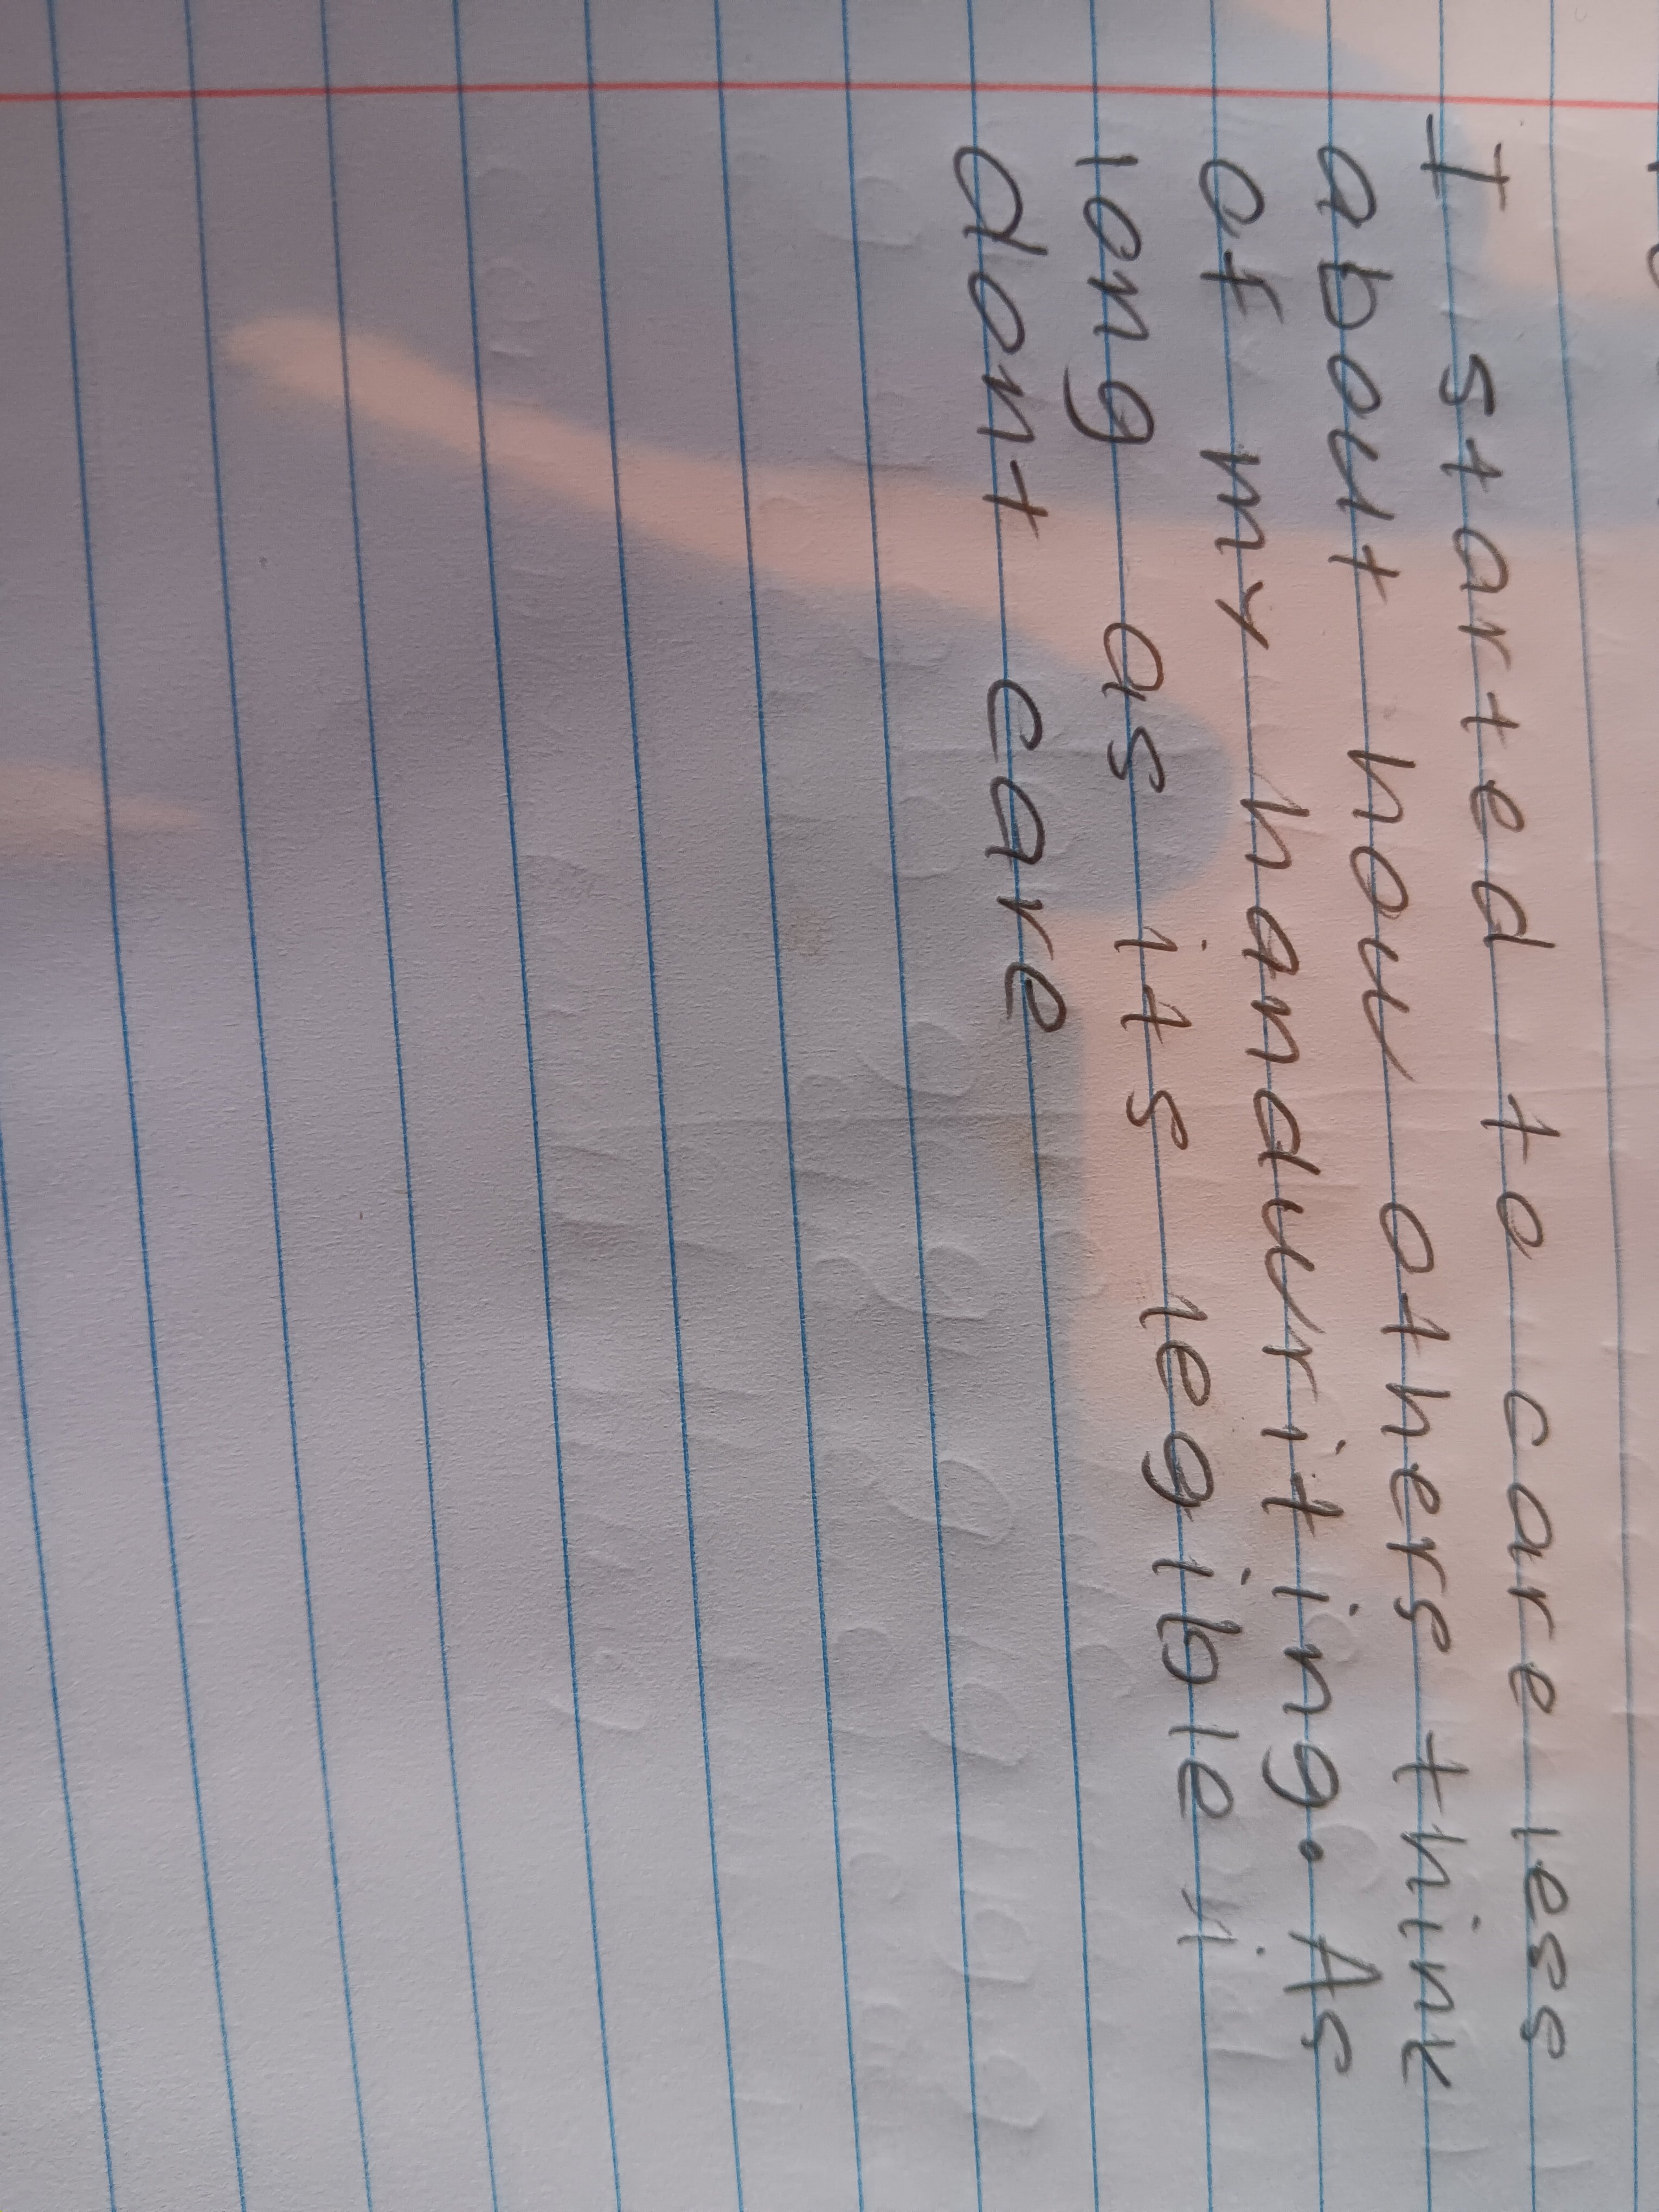 I started to care less
about how others think
of my handwriting. As
long as its legible i
dont care